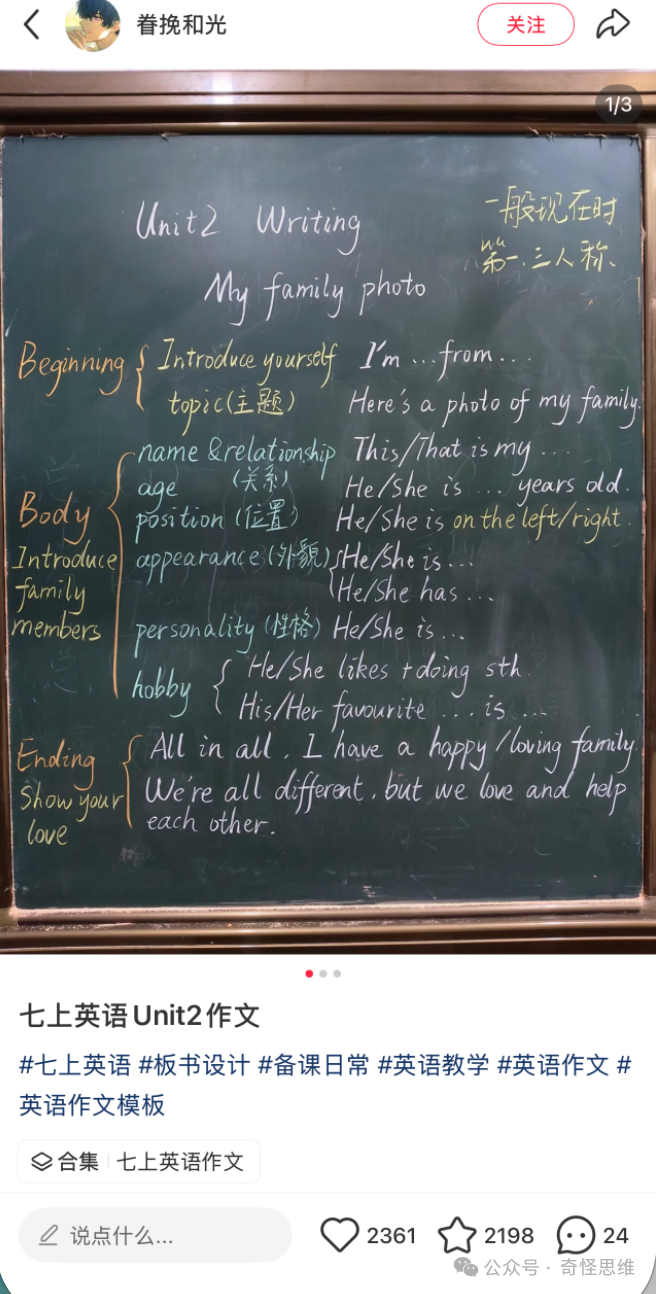 眷挽和光
关注
1/3
一般现在时
第一、三人称、
Unit2 Writing
My family photo
Beginning
Introduce yourself I'm ... from ...
topic(主题) Here's a photo of my family.
Body
Introduce
family
members
name & relationship This/That is my ...
(关系)
age He/She is ... years old.
position (位置) He/She is on the left/right.
appearance (外貌) He/She is ...
He/She has ...
personality (性格) He/She is ...
hobby
He/She likes + doing sth.
His/Her favourite ... is ...
Ending
Show your
love
All in all, I have a happy/loving family.
We're all different, but we love and help
each other.
七上英语Unit2作文
#七上英语 #板书设计 #备课日常 #英语教学 #英语作文 #
英语作文模板
合集 七上英语作文
说点什么...
2361
2198
24
公众号 · 奇怪思维